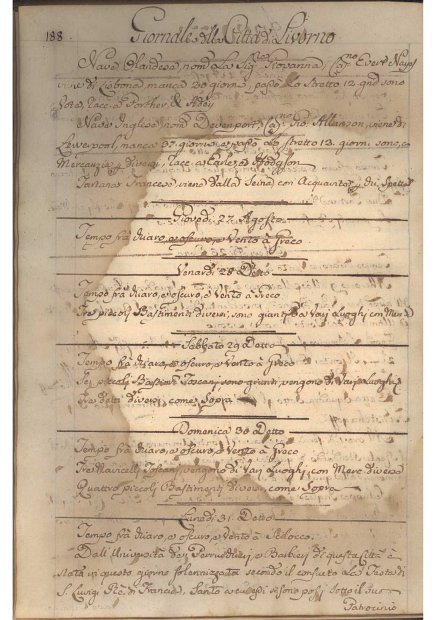 188. Giornale della Città di Livorno
Nave Olandese, nom.
viene di Lisbona manca 20 giorni, passò lo Stretto 12. gni sono

Nave Inglese nom. Devenport, Allanson, viene di
Liverpool, manca 37 giorni, e passò lo stretto 13. giorni sono, con
Mercanzie, Hodgson
Tartana Francese, viene dalla con
Giovedi 27 Agosto
Tempo frà chiaro, e oscuro, e Vento à Greco
Venardi 28 Detto
Tempo frà chiaro, e oscuro, e Vento à Greco
Tre piccoli Bastimenti diversi, sono giunti da Varj Luoghi con Merci
Sabbato 29 Detto
Tempo frà chiaro, e oscuro, e Vento à Greco
Sei piccoli Bastimti Toscani, sono giunti vengono di Varj Luoghi
diversi come Sopra
Domenica 30 Detto
Tempo frà chiaro, e oscuro, e Vento à Greco
Tre Toscani vengono di Varj Luoghi, con Merc diverse
Quattro piccoli Bastimenti diversi come Sopra
Lunedi 31 Detto
Tempo frà chiaro, e oscuro, e Vento à Scilocco.
Dall' Università dei Perrucchieri, e Barbieri di questa Città è
stata in questo giorno solennizzata secondo il consueto la Festa di
S. Luigi Rè di Francia, Santo sotto il suo
Patrocinio